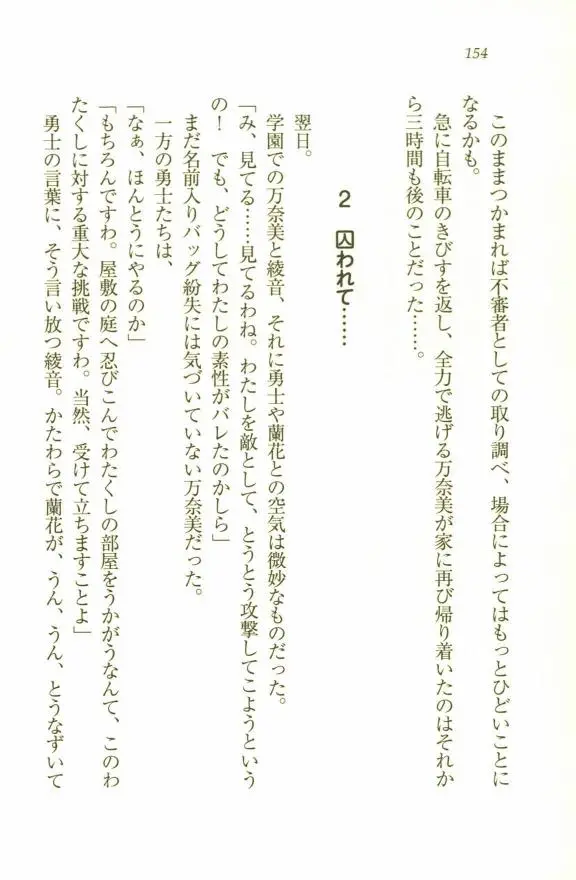 154
このままつかまれば不審者としての取り調べ、場合によってはもっとひどいことに
なるかも。
急に自転車のきびすを返し、全力で逃げる万奈美が家に再び帰り着いたのはそれか
ら三時間も後のことだった……。
2 囚われて……
翌日。
学園での万奈美と綾音、それに勇士や蘭花との空気は微妙なものだった。
「み、見てる……見てるわね。わたしを敵として、とうとう攻撃してこようという
の！ でも、どうしてわたしの素性がバレたのかしら」
まだ名前入りバッグ紛失には気づいていない万奈美だった。
一方の勇士たちは、
「なぁ、ほんとうにやるのか」
「もちろんですわ。屋敷の庭へ忍びこんでわたくしの部屋をうかがうなんて、このわ
たくしに対する重大な挑戦ですわ。当然、受けて立ちますことよ」
勇士の言葉に、そう言い放つ綾音。かたわらで蘭花が、うん、うん、とうなずいて